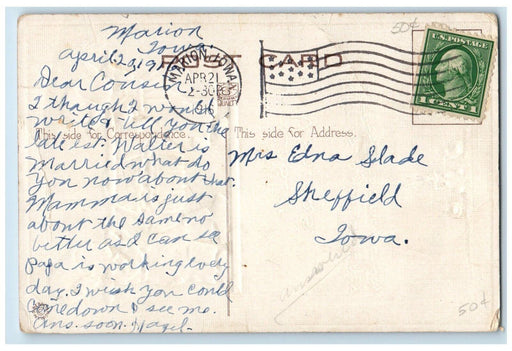 Marion
Iowa
POST CARD
MARION, IOWA
APR 21
2-30 P
U.S. POSTAGE
1 CENT 1
50¢
This side for Correspondence.
This side for Address.
Dear Cousin
I though I would
write & tell you the
late est. Walter is
Married what do
you now about that.
Mamma is just
about the same no
better as I can see
Papa is working every
day. I wish you could
Come down & see me.
Ans. soon. Hazel.
Mrs Edna Slade
Sheffield
Iowa.
answered
50¢